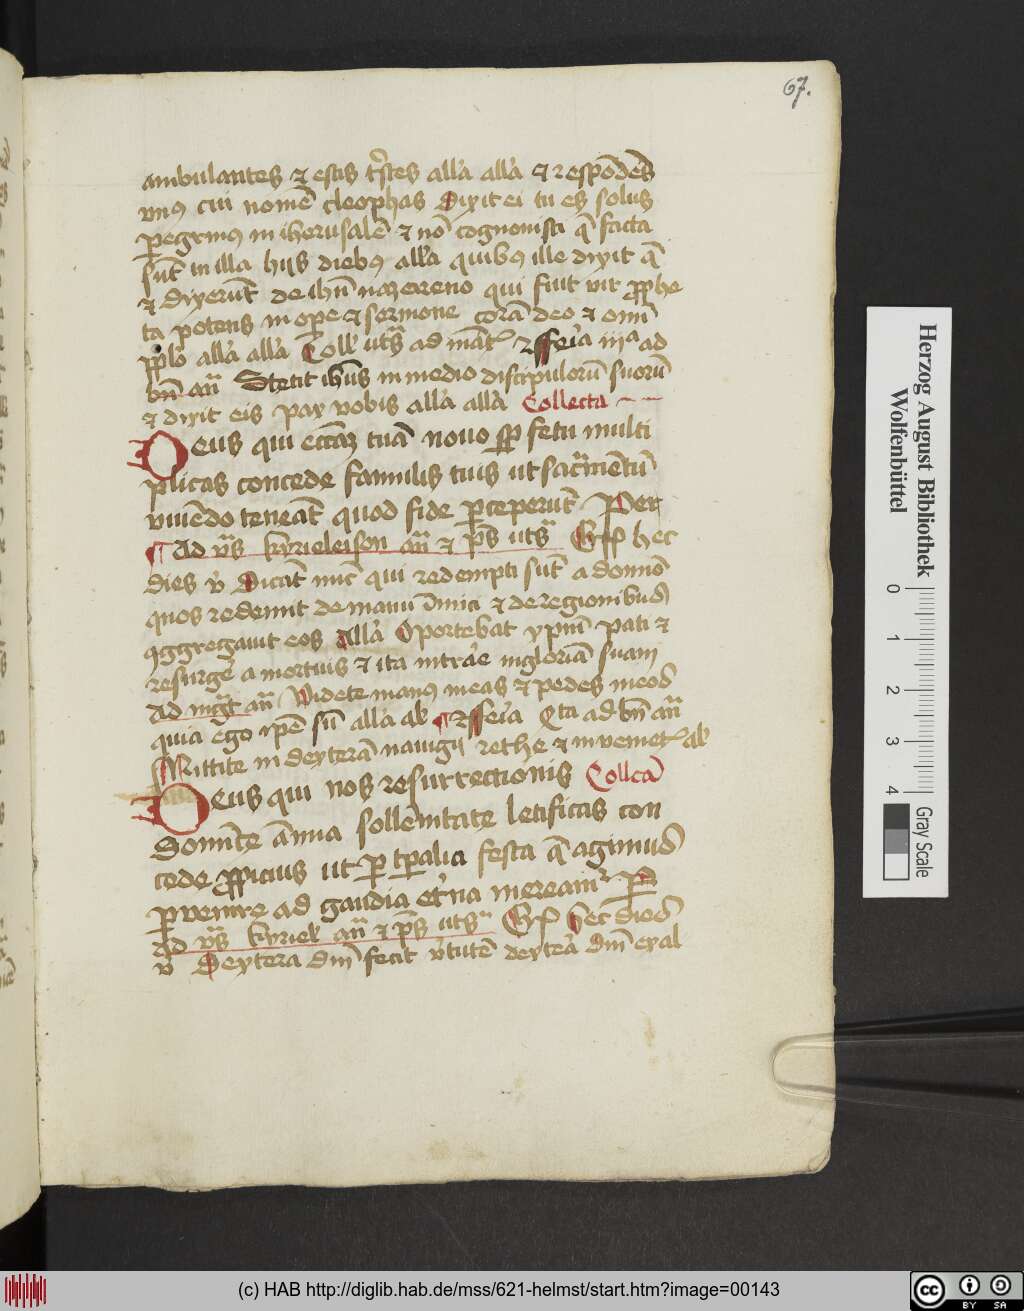 67.
ambulantes et estis tristes all'a all'a Et respōdēs
vnus cui nomē cleophas Dixit ei tu es solus
pegrinus in iherusalē et nō cognouisti q̄ facta
sūt in illa hijs diebus all'a quibus ille dixit q̄
et dixerūt de ihū nazareno qui fuit vir prophe
ta potens in ope et sermone corā deo et omī
pplo all'a all'a Coll' ad mat' feria iiiª ad
bn̄ an̄ Stetit ihūs in medio discipulorū suorū
et dixit eis pax vobis all'a all'a Collecta
Deus qui eccāz tuā nouo sp fetu multi
plicas concede famulis tuis ut sacrmentū
viuēdo teneāt quod fide pceperūt Per
Ad vs̄ kyrieleison an̄ et ps̄ hec
dies v̄ Dicāt nūc qui redempti sūt a domīo
quos redemit de manu inimici et de regionibus
gggregauit eos all'a Oportebat xpm̄ pati et
resurge' a mortuis et ita intra'e in gloriā suam
Ad mg̅t an̄ Videte manus meas et pedes meos
quia ego ipse sū all'a al' feria ad bn̄ an̄
Mittite in dexterā nauigij rethe et inuenietis al'
Deus qui nos resurrectionis Collcā
Dominice annua sollēnitate letificas con
cede pp̄icius ut p tpalia festa q̄ agimus
pvenire ad gaudia et'na mereamur P
ad vs̄ kyriel' an̄ et ps̄ hec dies
v̄ Dextera dn̄i fecit v'tutē dextera dn̄i exal
Herzog August Bibliothek
Wolfenbüttel
0 1 2 3 4
Gray Scale
(c) HAB http://diglib.hab.de/mss/621-helmst/start.htm?image=00143
cc BY SA